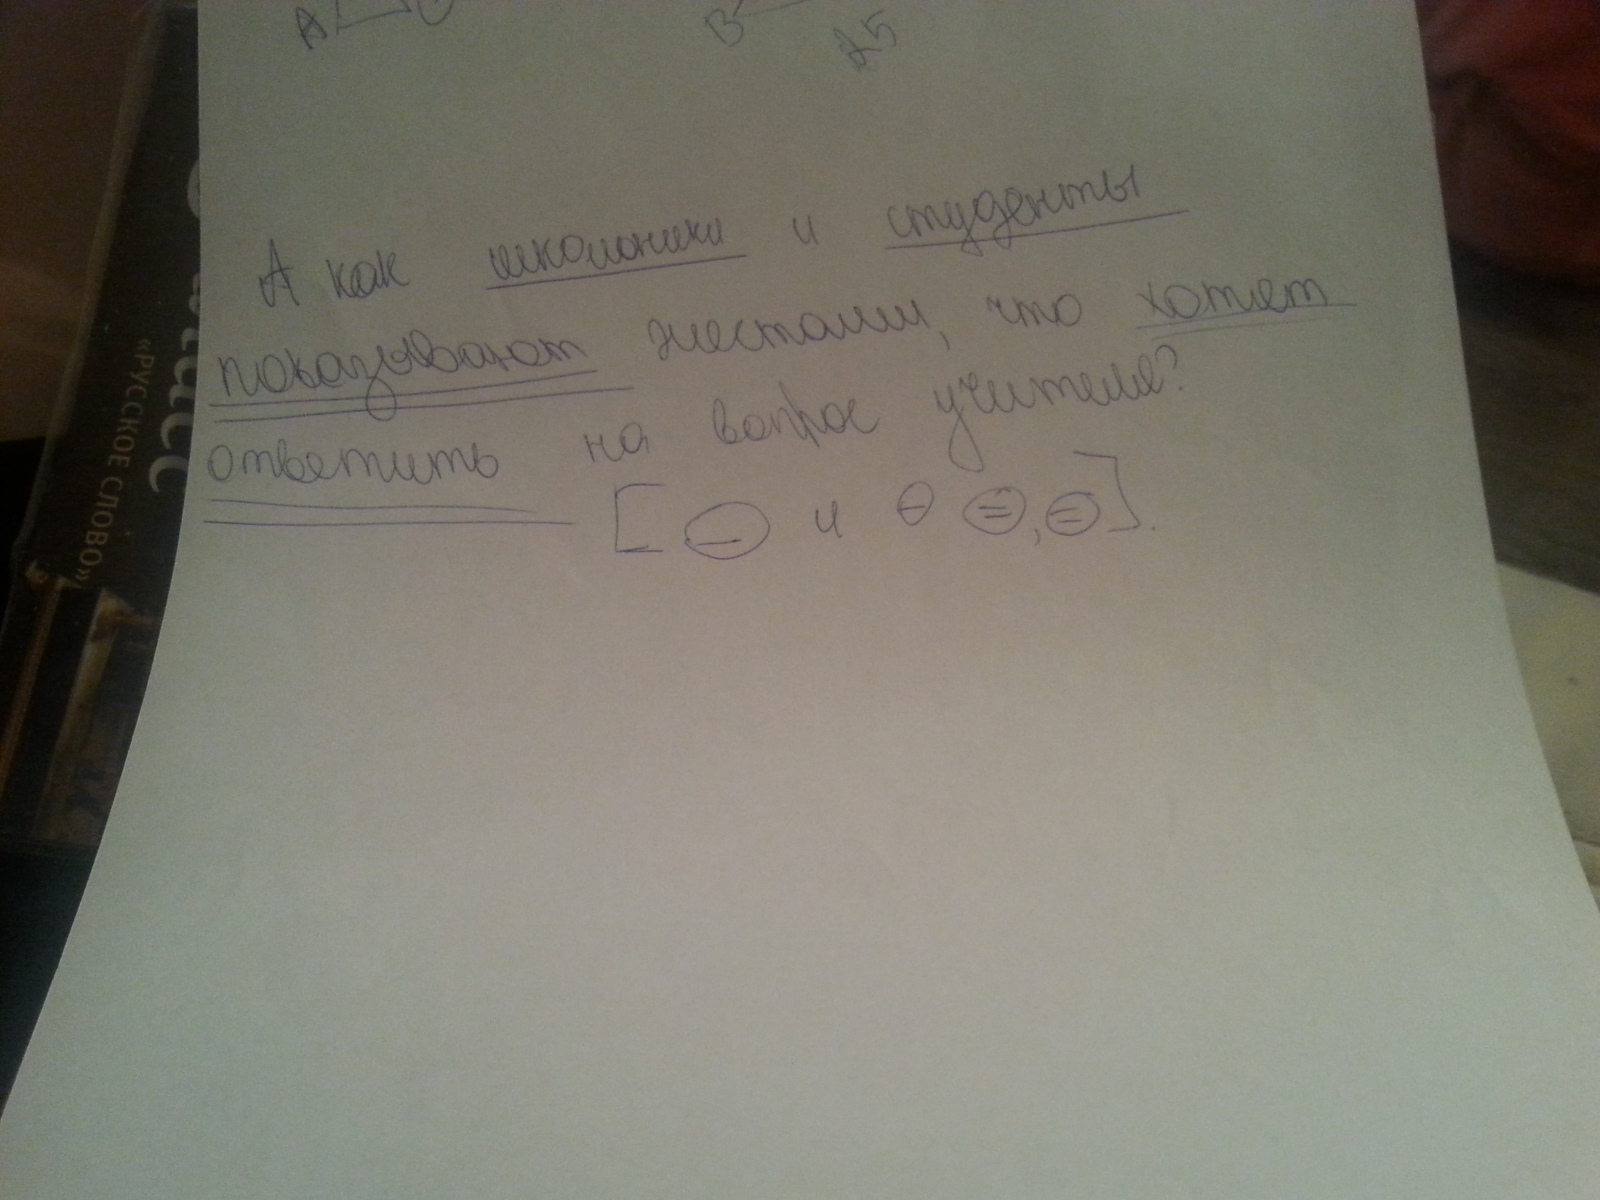 А
В
α5
А как школьники и студенты
показывают жестами, что хотят
ответить на вопрос учителя?
[ и , ].
«РУССКОЕ СЛОВО»